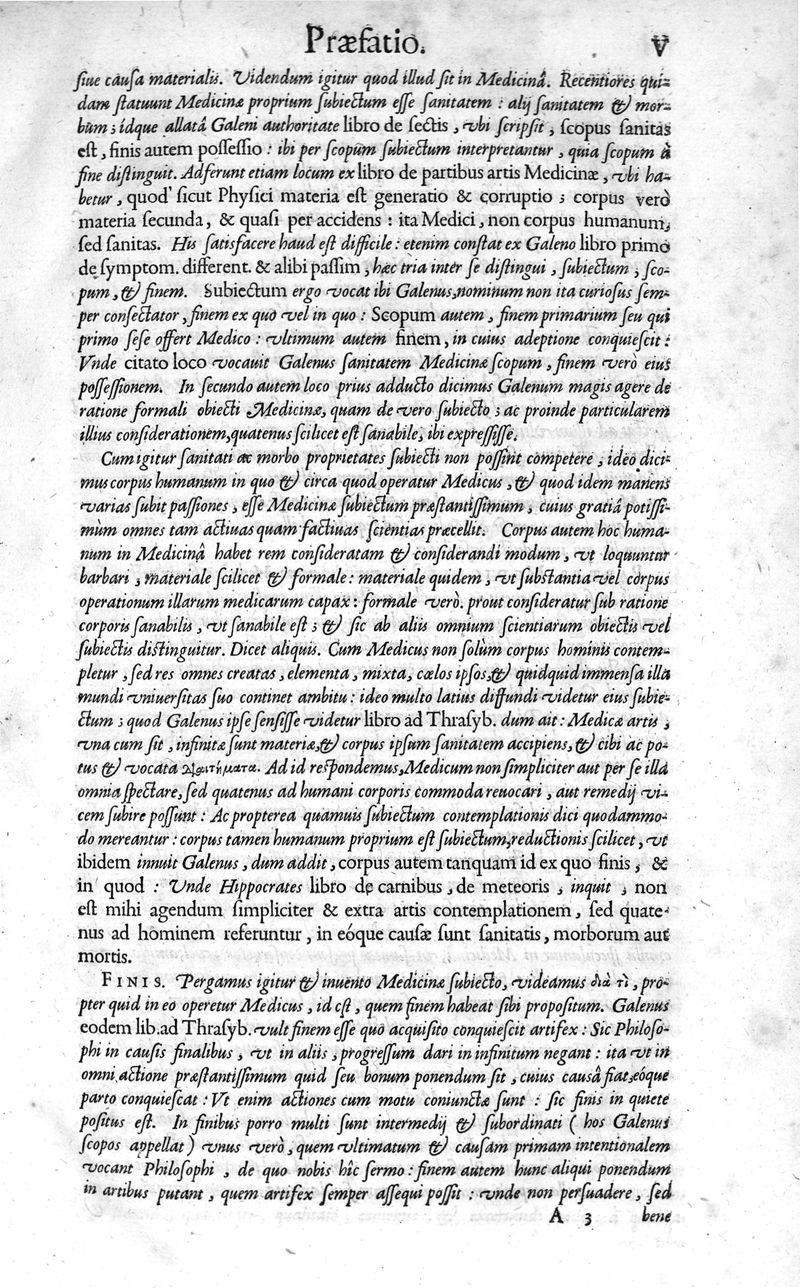 Præfatio. V
ſiue cauſa materialis. Videndum igitur quod illud ſit in Medicinâ. Recentiores qui-
dam ſtatuunt Medicinæ proprium ſubiectum eſſe ſanitatem : alij ſanitatem & mor-
bum ; idque allatâ Galeni authoritate libro de ſectis , vbi ſcripſit , ſcopus ſanitas
eſt , finis autem poſſeſſio : ibi per ſcopum ſubiectum interpretantur , quia ſcopum à
fine diſtinguit. Adferunt etiam locum ex libro de partibus artis Medicinæ , vbi ha-
betur , quod ſicut Phyſici materia eſt generatio & corruptio ; corpus verò
materia ſecunda, & quaſi per accidens : ita Medici , non corpus humanum,
ſed ſanitas. His ſatisfacere haud eſt difficile : etenim conſtat ex Galeno libro primo
de ſymptom. different. & alibi paſſim , hæc tria inter ſe diſtingui , ſubiectum , ſco-
pum , & finem. Subiectum ergo vocat ibi Galenus, nominum non ita curioſus ſem-
per conſectator , finem ex quo vel in quo : Scopum autem , finem primarium ſeu qui
primo ſeſe offert Medico : vltimum autem finem , in cuius adeptione conquieſcit :
Vnde citato loco vocauit Galenus ſanitatem Medicinæ ſcopum , finem verò eius
poſſeſſionem. In ſecundo autem loco prius adducto dicimus Galenum magis agere de
ratione formali obiecti Medicinæ, quam de vero ſubiecto ; ac proinde particularem
illius conſiderationem, quatenus ſcilicet eſt ſanabile, ibi expreſſiſſe.
Cum igitur ſanitati ac morbo proprietates ſubiecti non poſſint competere , ideo dici-
mus corpus humanum in quo & circa quod operatur Medicus , & quod idem manens
varias ſubit paſſiones , eſſe Medicinæ ſubiectum præſtantiſſimum , cuius gratiâ potiſſi-
mùm omnes tam actiuas quam factiuas ſcientias præcellit. Corpus autem hoc huma-
num in Medicinâ habet rem conſideratam & conſiderandi modum , vt loquuntur
barbari , materiale ſcilicet & formale : materiale quidem , vt ſubſtantia vel corpus
operationum illarum medicarum capax : formale verò. prout conſideratur ſub ratione
corporis ſanabilis , vt ſanabile eſt ; & ſic ab aliis omnium ſcientiarum obiectis vel
ſubiectis diſtinguitur. Dicet aliquis. Cum Medicus non ſolùm corpus hominis contem-
pletur , ſed res omnes creatas , elementa , mixta, cœlos ipſos, & quidquid immenſa illa
mundi vniuerſitas ſuo continet ambitu : ideo multo latius diffundi videtur eius ſubie-
ctum ; quod Galenus ipſe ſenſiſſe videtur libro ad Thraſyb. dum ait : Medicæ artis ,
vna cum ſit , infinitæ ſunt materiæ, & corpus ipſum ſanitatem accipiens, & cibi ac po-
tus & vocata Ad id reſpondemus, Medicum non ſimpliciter aut per ſe illa
omnia ſpectare, ſed quatenus ad humani corporis commoda reuocari , aut remedij vi-
cem ſubire poſſunt : Ac propterea quamuis ſubiectum contemplationis dici quodammo-
do mereantur : corpus tamen humanum proprium eſt ſubiectum, reductionis ſcilicet , vt
ibidem innuit Galenus , dum addit , corpus autem tanquam id ex quo finis , &
in quod : Vnde Hippocrates libro de carnibus , de meteoris , inquit , non
eſt mihi agendum ſimpliciter & extra artis contemplationem , ſed quate-
nus ad hominem referuntur , in eóque cauſæ ſunt ſanitatis , morborum aut
mortis.
FINIS. Pergamus igitur & inuento Medicinæ ſubiecto, videamus διὰ τὶ , pro-
pter quid in eo operetur Medicus , id eſt , quem finem habeat ſibi propoſitum. Galenus
eodem lib. ad Thraſyb. vult finem eſſe quo acquiſito conquieſcit artifex : Sic Philoſo-
phi in cauſis finalibus , vt in aliis , progreſſum dari in infinitum negant : ita vt in
omni actione præſtantiſſimum quid ſeu bonum ponendum ſit , cuius cauſâ fiat, eóque
parto conquieſcat : Vt enim actiones cum motu coniunctæ ſunt : ſic finis in quiete
poſitus eſt. In finibus porro multi ſunt intermedij & ſubordinati ( hos Galenus
ſcopos appellat ) vnus verò , quem vltimatum & cauſam primam intentionalem
vocant Philoſophi , de quo nobis hîc ſermo : finem autem hunc aliqui ponendum
in artibus putant , quem artifex ſemper aſſequi poſſit : vnde non perſuadere , ſed
A 3 bene